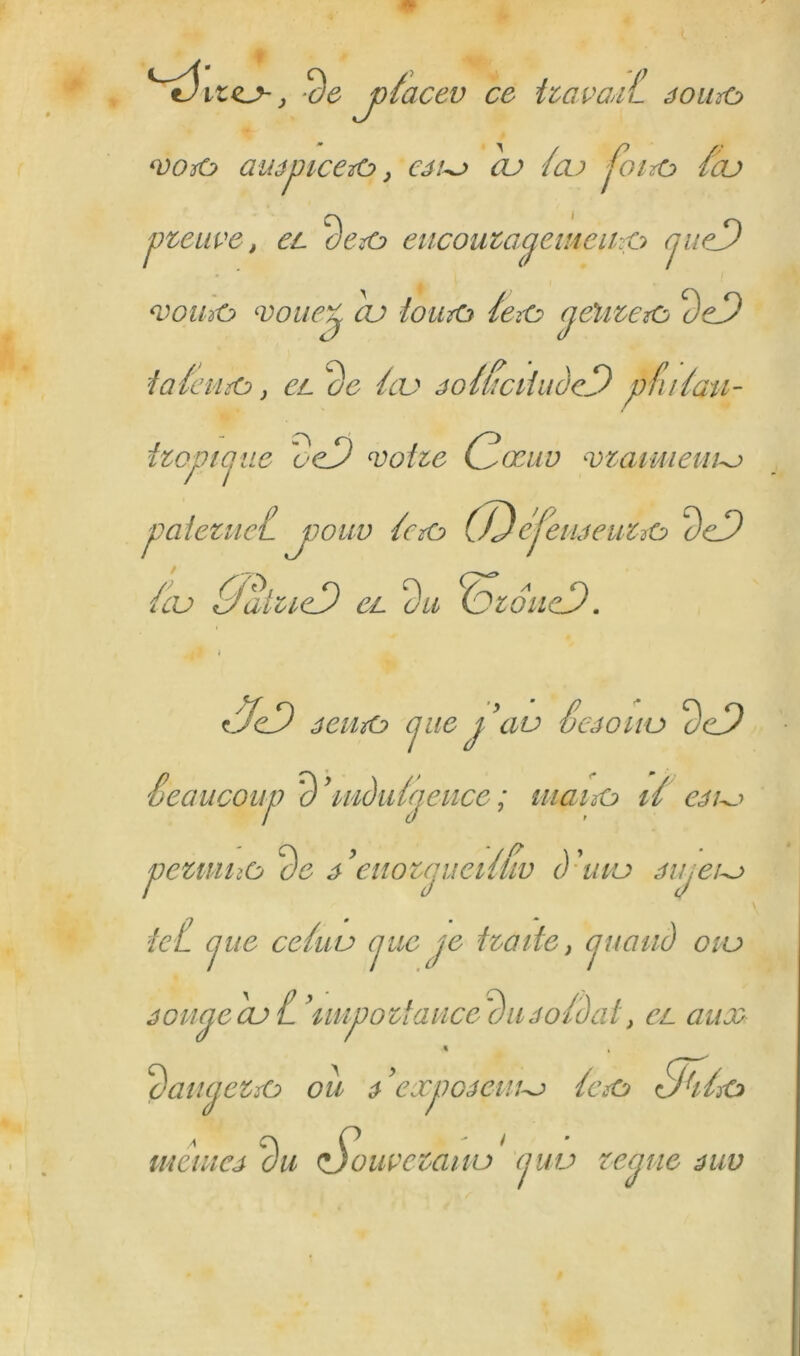 Sire, de placer ce travail sous
vos auspices, est à la fois la
preuve, et des encouragemens que
vous vouez à tous les genres de
talens, et de la sollicitude philan-
tropique de votre Cœur vraiment
paternel pour les Défenseurs de
la Patrie et du Trône.
Je sens que j'ai besoin de
beaucoup d'indulgence; mais il est
permis de s'enorgueillir d'un sujet
tel que celui que je traite, quand on
songe à l'importance du soldat, et aux
dangers où s'exposent les Fils
mêmes du Souverain qui regne sur